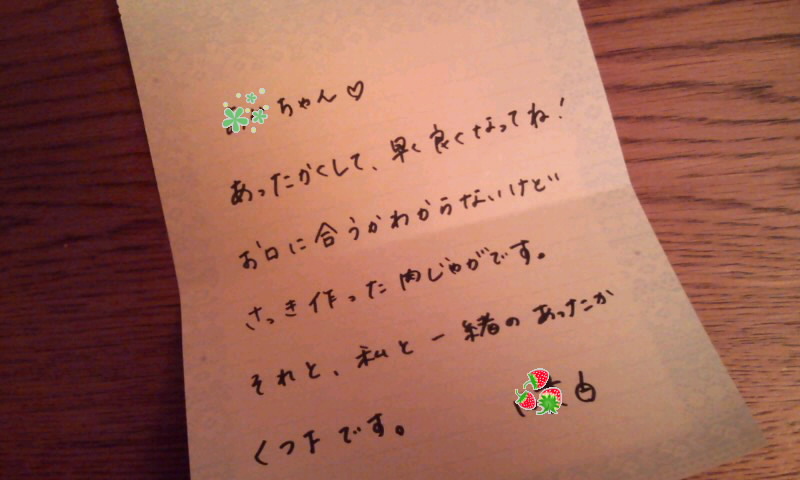 ちゃん♡
あったかくして、早く良くなってね!
お口に合うかわからないけど
さっき作った肉じゃがです。
それと、私と一緒のあったか
くつ下です。